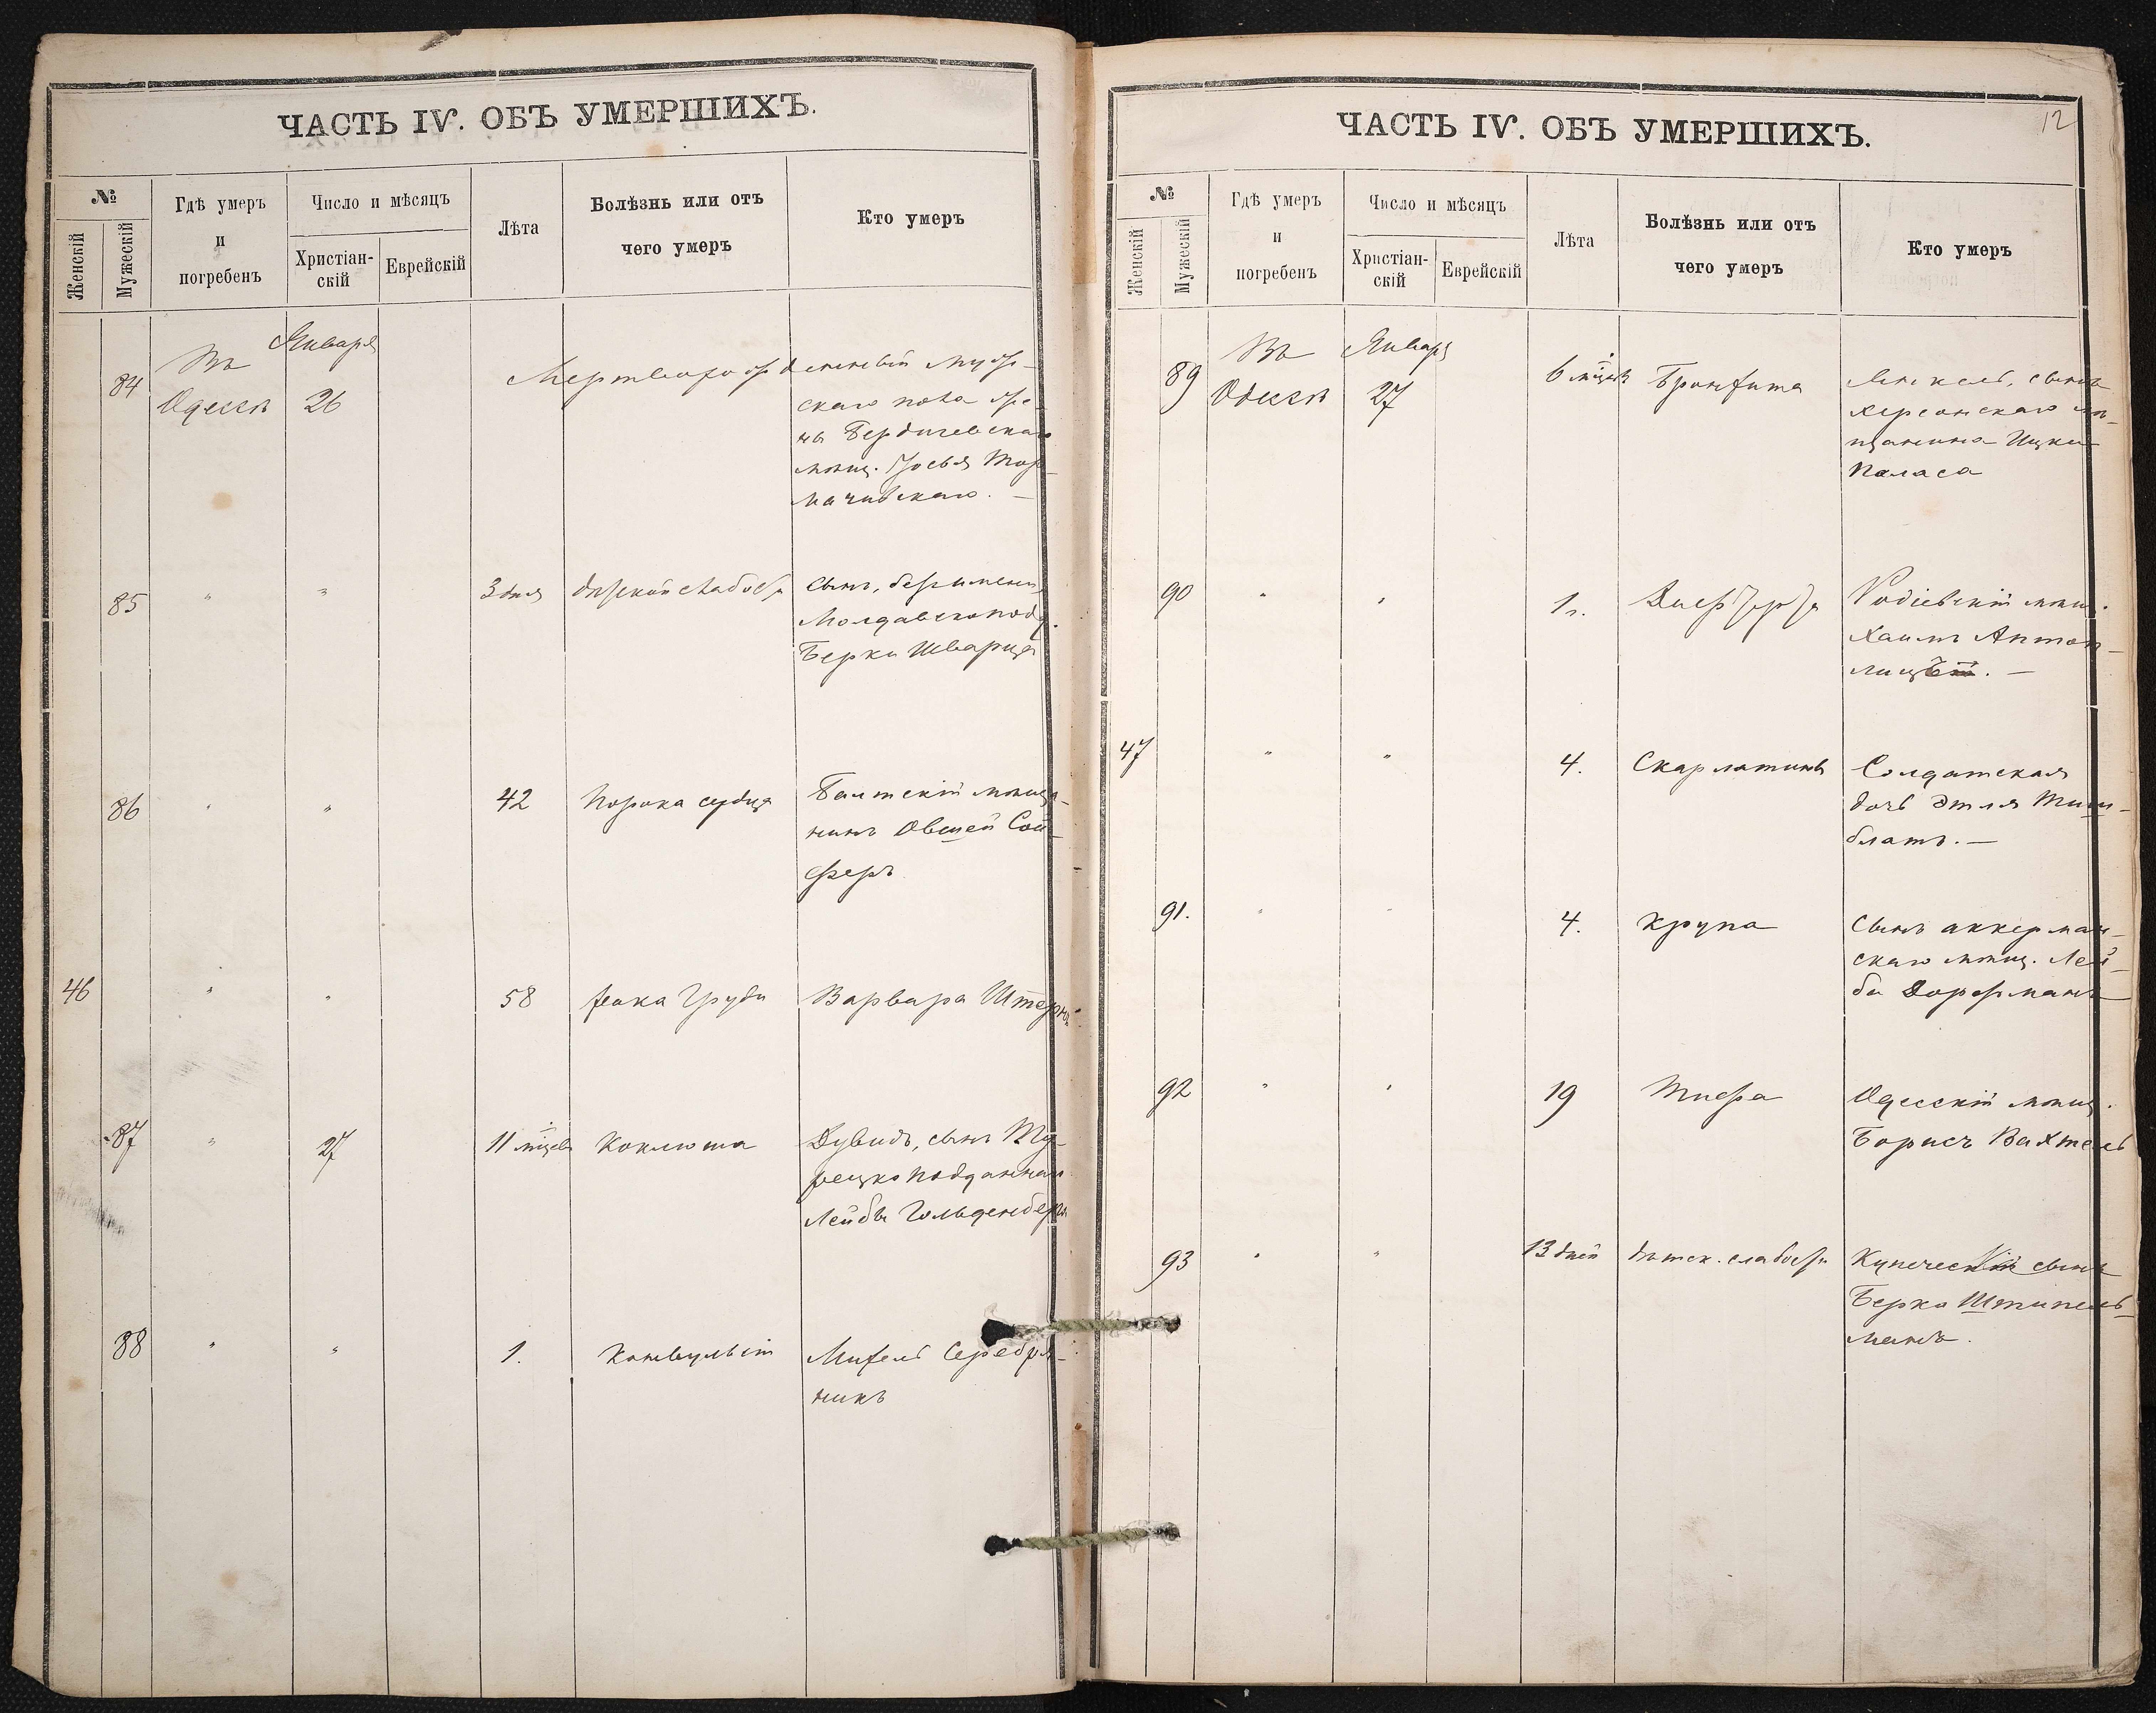 ЧАСТЬ IV. ОБЪ УМЕРШИХЪ.
№
Женскій
Мужескій
Гдѣ умеръ
и
погребенъ
Число и мѣсяцъ
Христіан-
скій
Еврейскій
Лѣта
Болѣзнь или отъ
чего умеръ
Кто умеръ
84
Въ
Одессѣ
Января
26
Мертворожденный муж-
скаго пола же-
ны Бердичевскаго
мѣщ.
85 " " 3 дня дѣтской слабости
Сынъ, безъимен.
Молдавскопод.
Берки Шварца
86 " " 42 Порока сердца
Балтскій мѣща-
нинъ Овшей Сой-
феръ
46 " " 58 рака груди Варвара Штернъ
87 " 27 11 мѣсяцевъ Коклюша
Дувидъ, сынъ Ту-
рецкоподданнаго
Лейбы Гольденберга
88 " " 1. Конвульсій
Серебря-
никъ
12
ЧАСТЬ IV. ОБЪ УМЕРШИХЪ.
№
Женскій
Мужескій
Гдѣ умеръ
и
погребенъ
Число и мѣсяцъ
Христіан-
скій
Еврейскій
Лѣта
Болѣзнь или отъ
чего умеръ
Кто умеръ
89
Въ
Одессѣ
Января
27
6 мѣсяцев Бронхита
сынъ
Херсонскаго мѣ-
щанина Ицки
Паласа
90 " " 1 г.
мѣщ.
Хаимъ
47 " " 4. Скарлатины
Солдатская
дочь Этля
блатъ. —
91. " " 4. Крупа
Сынъ аккерман-
скаго мѣщ. Лей-
бы Дорфманъ
92 " " 19 Тифа
Одесскій мѣщ.
Борисъ Вахтель
93 " " 13 дней дѣтск. слабости
Купеческій сынъ
Берко Штипель-
манъ.